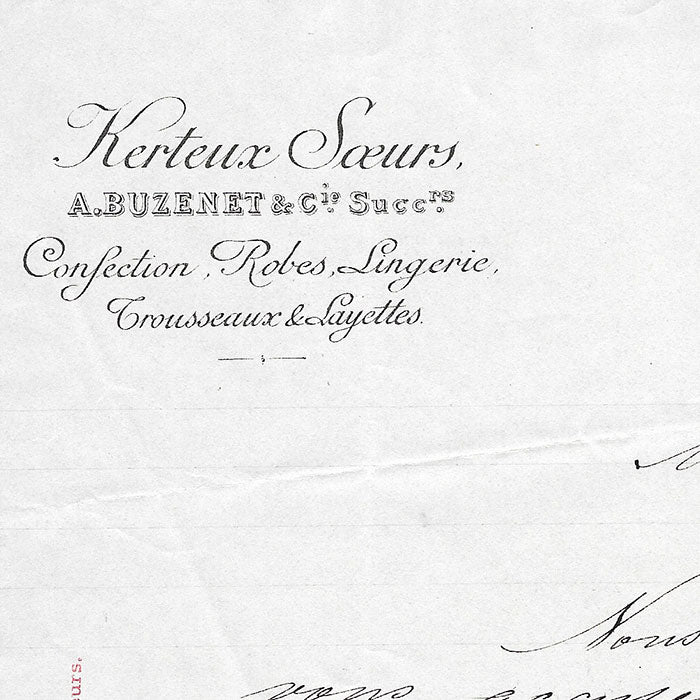 Kerteux Sœurs,
A. BUZENET & Cie Succrs
Confection, Robes, Lingerie,
Trousseaux & Layettes.
Nous
vous
urs.